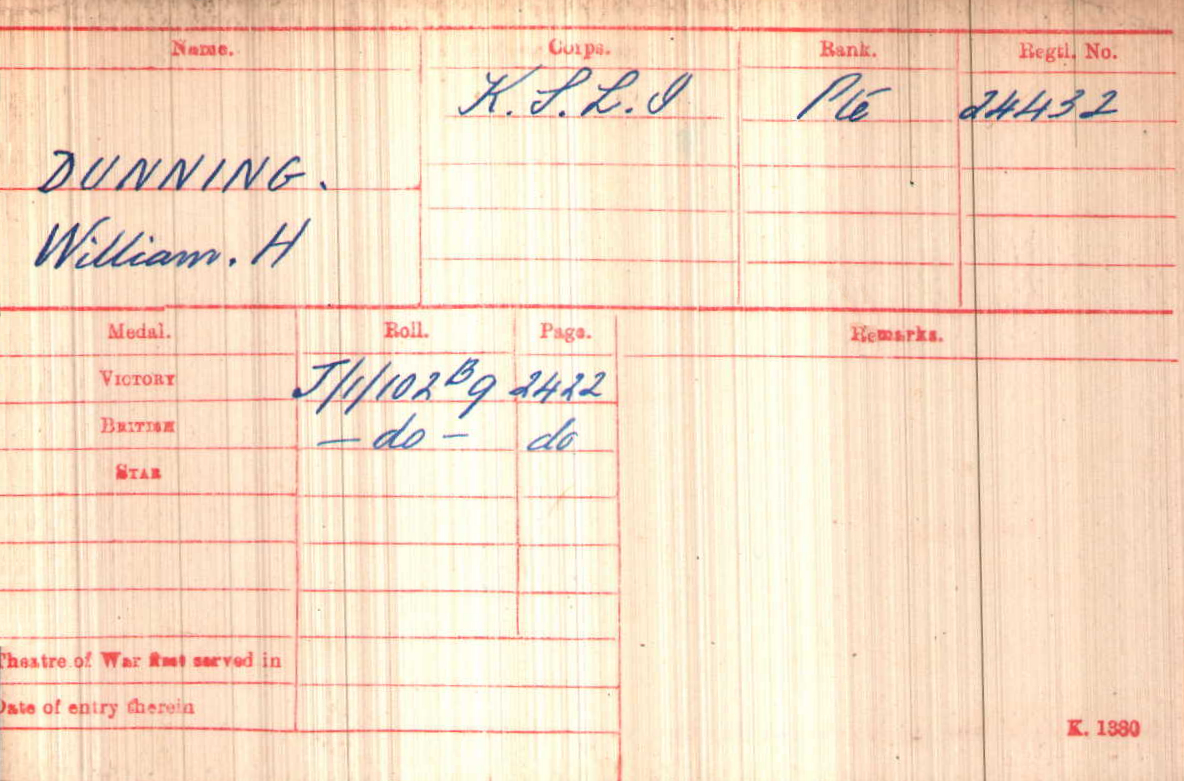 Name. Corps. Rank. Regtl. No.
K.S.L.I Pte 24432
DUNNING.
William. H
Medal. Roll. Page. Remarks.
VICTORY J/1/102 B9 2422
BRITISH — do — do
STAR
Theatre of War first served in
Date of entry therein
K. 1380